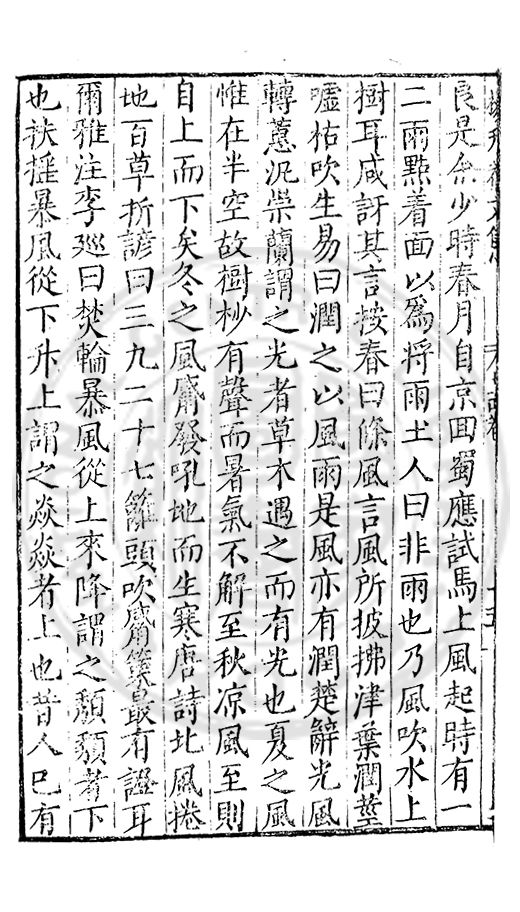 良是余少時春月自京回蜀應試馬上風起時有一
二雨點着面以爲將雨土人曰非雨也乃風吹水上
樹耳咸訝其言按春曰條風言風所披拂津葉潤莖
噓枯吹生易曰潤之以風雨是風亦有潤楚辭光風
轉蕙汜崇蘭謂之光者草木遇之而有光也夏之風
惟在半空故樹杪有聲而暑氣不解至秋凉風至則
自上而下矣冬之風觱發吼地而生寒唐詩北風捲
地百草折諺曰三九二十七籬頭吹觱篥最有證耳
爾雅注李廵曰焚輪暴風從上來降謂之頹頹者下
也扶摇暴風從下升上謂之焱焱者上也昔人已有